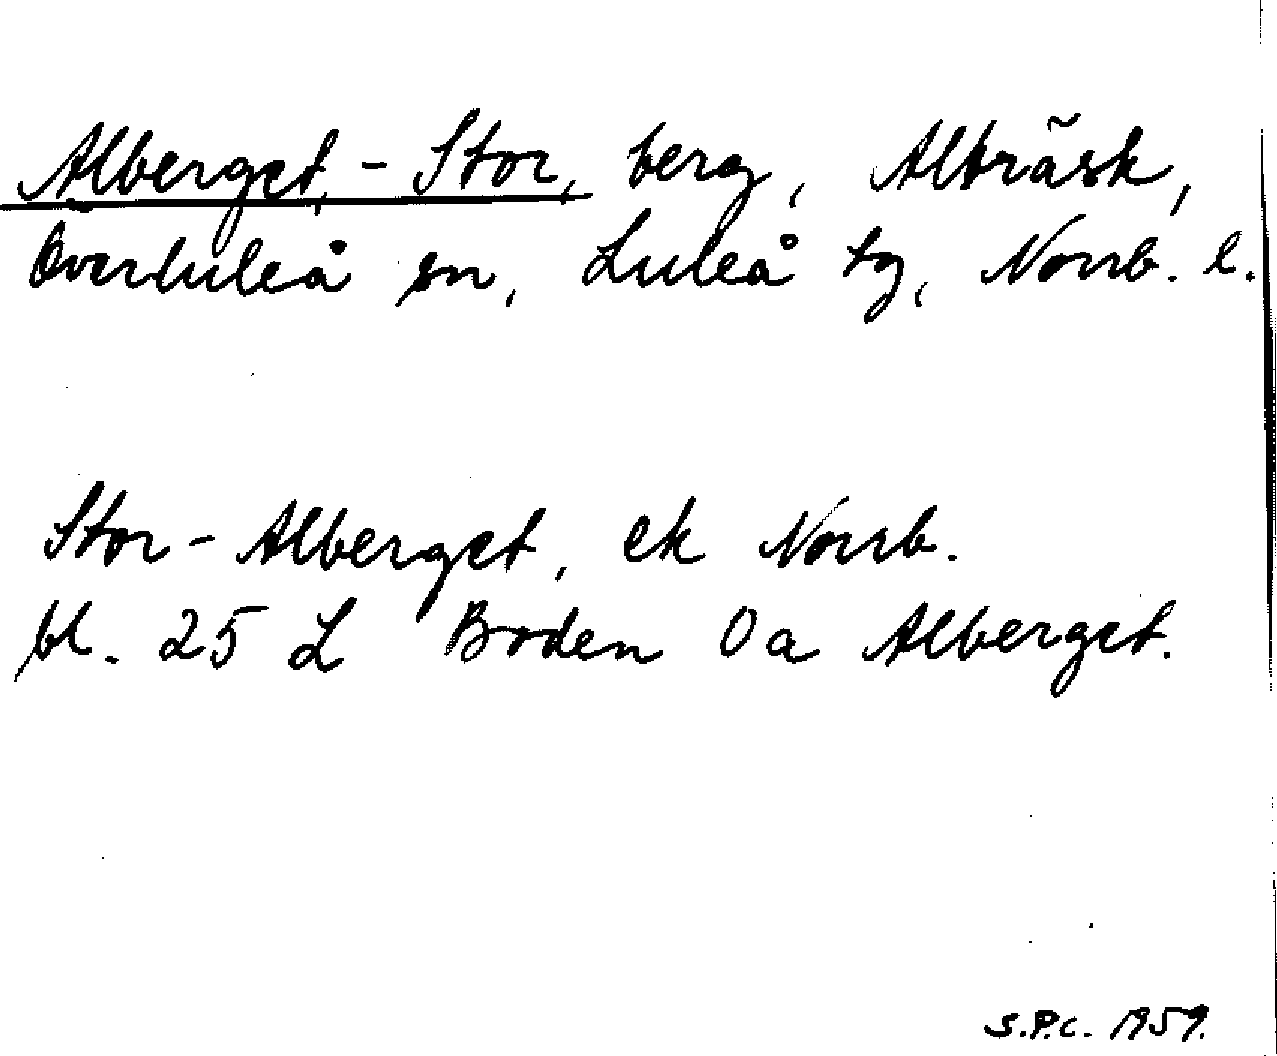 Alberget, - Stor, berg, Alträsk,
Överluleå sn, Luleå tg, Norrb. l.
Stor-Alberget, ek Norrb.
bl. 25 L Boden 0a Alberget.
S.P.C. 1959.